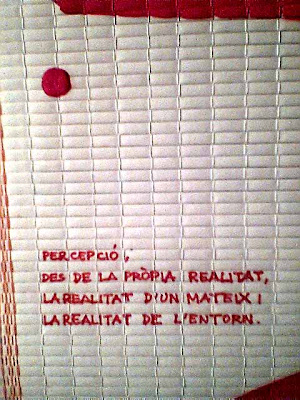 PERCEPCIÓ,
DES DE LA PRÒPIA REALITAT,
LA REALITAT D'UN MATEIX I
LA REALITAT DE L'ENTORN.